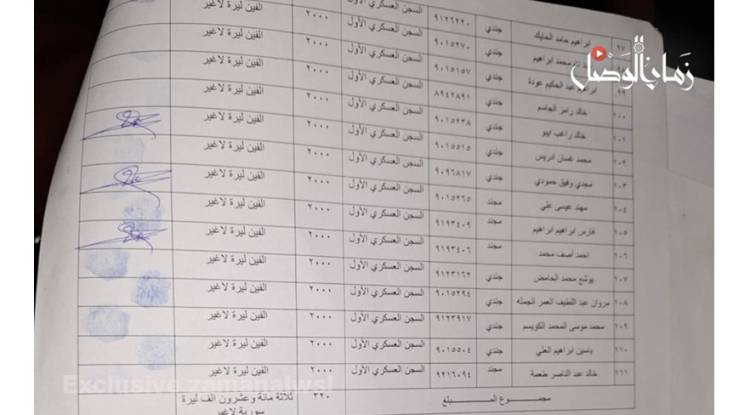 زمان الوصل
٩٧ ابراهيم حامد الحايك جندي ٩١٢٦٢٢٠ السجن العسكري الأول ٢٠٠٠ الفين ليرة لاغير
محمد ابراهيم جندي ٩٠١٥٢٧٠ السجن العسكري الأول ٢٠٠٠ الفين ليرة لاغير
٩٩ عبد الحكيم عودة جندي ٩٠١٥١٥٧ السجن العسكري الأول ٢٠٠٠ الفين ليرة لاغير
١٠٠ خالد رامز الجاسم جندي ٨٩٤٢٨٩١ السجن العسكري الأول ٢٠٠٠ الفين ليرة لاغير
١٠١ خالد راغب ايبو جندي ٩٠١٥٢٣٨ السجن العسكري الأول ٢٠٠٠ الفين ليرة لاغير
محمد غسان ادريس جندي ٩٠١٥٥١٥ السجن العسكري الأول ٢٠٠٠ الفين ليرة لاغير
١٠٣ مجدي وفيق حمودي جندي ٩٠٩٦٨١٧ السجن العسكري الأول ٢٠٠٠ الفين ليرة لاغير
١٠٤ مهند عيسى علي مجند ٩٠١٥٢٦٥ السجن العسكري الأول ٢٠٠٠ الفين ليرة لاغير
١٠٥ فارس ابراهيم ابراهيم مجند ٩١٩٣٤٠٩ السجن العسكري الأول ٢٠٠٠ الفين ليرة لاغير
١٠٦ احمد آصف محمد مجند ٩١٩٣٤٠٦ السجن العسكري الأول ٢٠٠٠ الفين ليرة لاغير
١٠٧ يوشع محمد الحامض جندي ٩١٢٣٦٦٢ السجن العسكري الأول ٢٠٠٠ الفين ليرة لاغير
١٠٨ مروان عبد اللطيف العمر الجمله جندي ٩٠١٥٢٩٤ السجن العسكري الأول ٢٠٠٠ الفين ليرة لاغير
محمد موسى المحمد الكويسم جندي ٩١٢٣٩١٧ السجن العسكري الأول ٢٠٠٠ الفين ليرة لاغير
ياسين ابراهيم العلي جندي ٩٠١٥٥٠٤ السجن العسكري الأول ٢٠٠٠ الفين ليرة لاغير
خالد عبد الناصر طعمة مجند ٩٢١٦٠٩٤ السجن العسكري الأول ٢٠٠٠ الفين ليرة لاغير
مجمــــوع المــــبلغ ٣٢٠ ثلاثة مائة وعشرون الف ليرة
سورية لاغير
Exclusive zamanalwsl